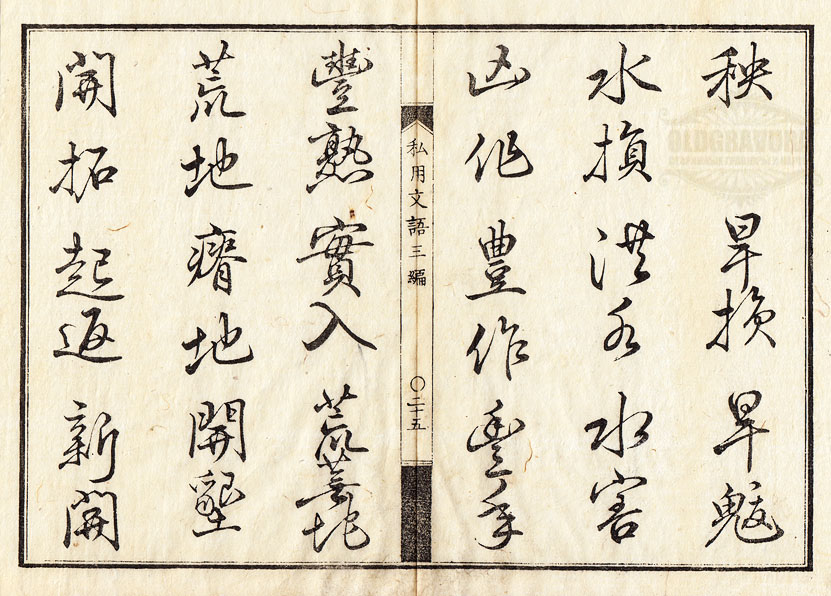 秧 旱損 旱魃
水損 洪水 水害
凶作 豊作 豊年
私用文語三編 〇二十五
豐熟 實入 荒蕪地
荒地 瘠地 開墾
開拓 起返 新開
OLDGRAVURA